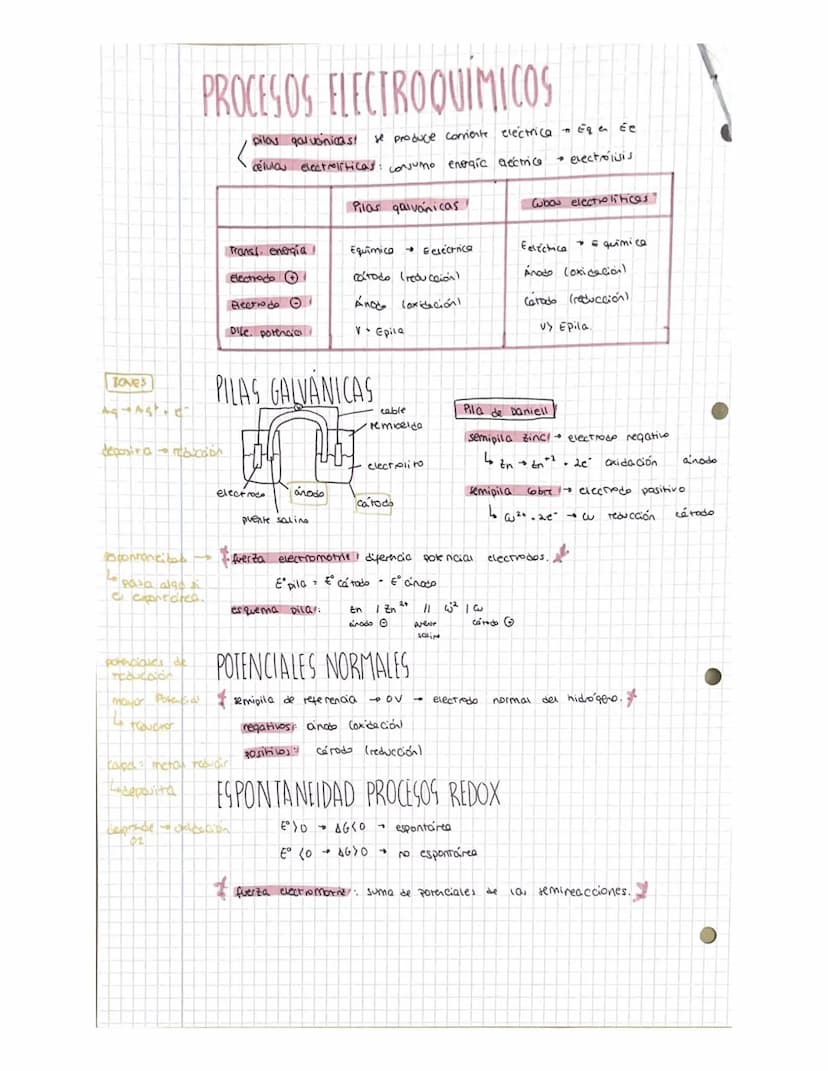 PROCESOS ELECTROQUÍMICOS
pilas galvánicas: se produce corriente eléctrica → Eq en Ee
células electrolíticas: consumo energía eléctrica → electrólisis
Pilas galvánicas
Cubas electrolíticas
Transf. energía
Equímica → Eeléctrica
Eeléctrica → E química
electrodo ⊕
cátodo (reducción)
Ánodo (oxidación)
Electrodo ⊖
Ánodo (oxidación)
Cátodo (reducción)
Dife. potencial
V = Epila
V> Epila.
IONES
Ag → Ag+ + e-
deposita → reducción
PILAS GALVÁNICAS
cable
semicelda
electrolito
electrodo
ánodo
cátodo
puente salino
Pila de Daniell
semipila zinc → electrodo negativo
↳ Zn → Zn+2 + 2e- oxidación ánodo
semipila cobre → electrodo positivo
↳ Cu2+ + 2e- → Cu reducción cátodo
espontaneidad →
↳ pasa algo si
es espontánea.
fuerza electromotriz: diferencia potencial electrodos.
E°pila = E°cátodo - E°ánodo
esquema pila: Zn | Zn2+ || Cu2 | Cu
ánodo ⊖ puente salino cátodo ⊕
potenciales de
reducción
mayor Potencial
↳ reducir
capa: metal reducir
↳ deposita
desprende → oxidación
O2
POTENCIALES NORMALES
semipila de referencia → 0V → electrodo normal del hidrógeno.
negativos: ánodo (oxidación)
positivos: cátodo (reducción)
ESPONTANEIDAD PROCESOS REDOX
E° >0 → ΔG<0 → espontánea
E° <0 → ΔG>0 → no espontánea
fuerza electromotriz: suma de potenciales de las semireacciones.